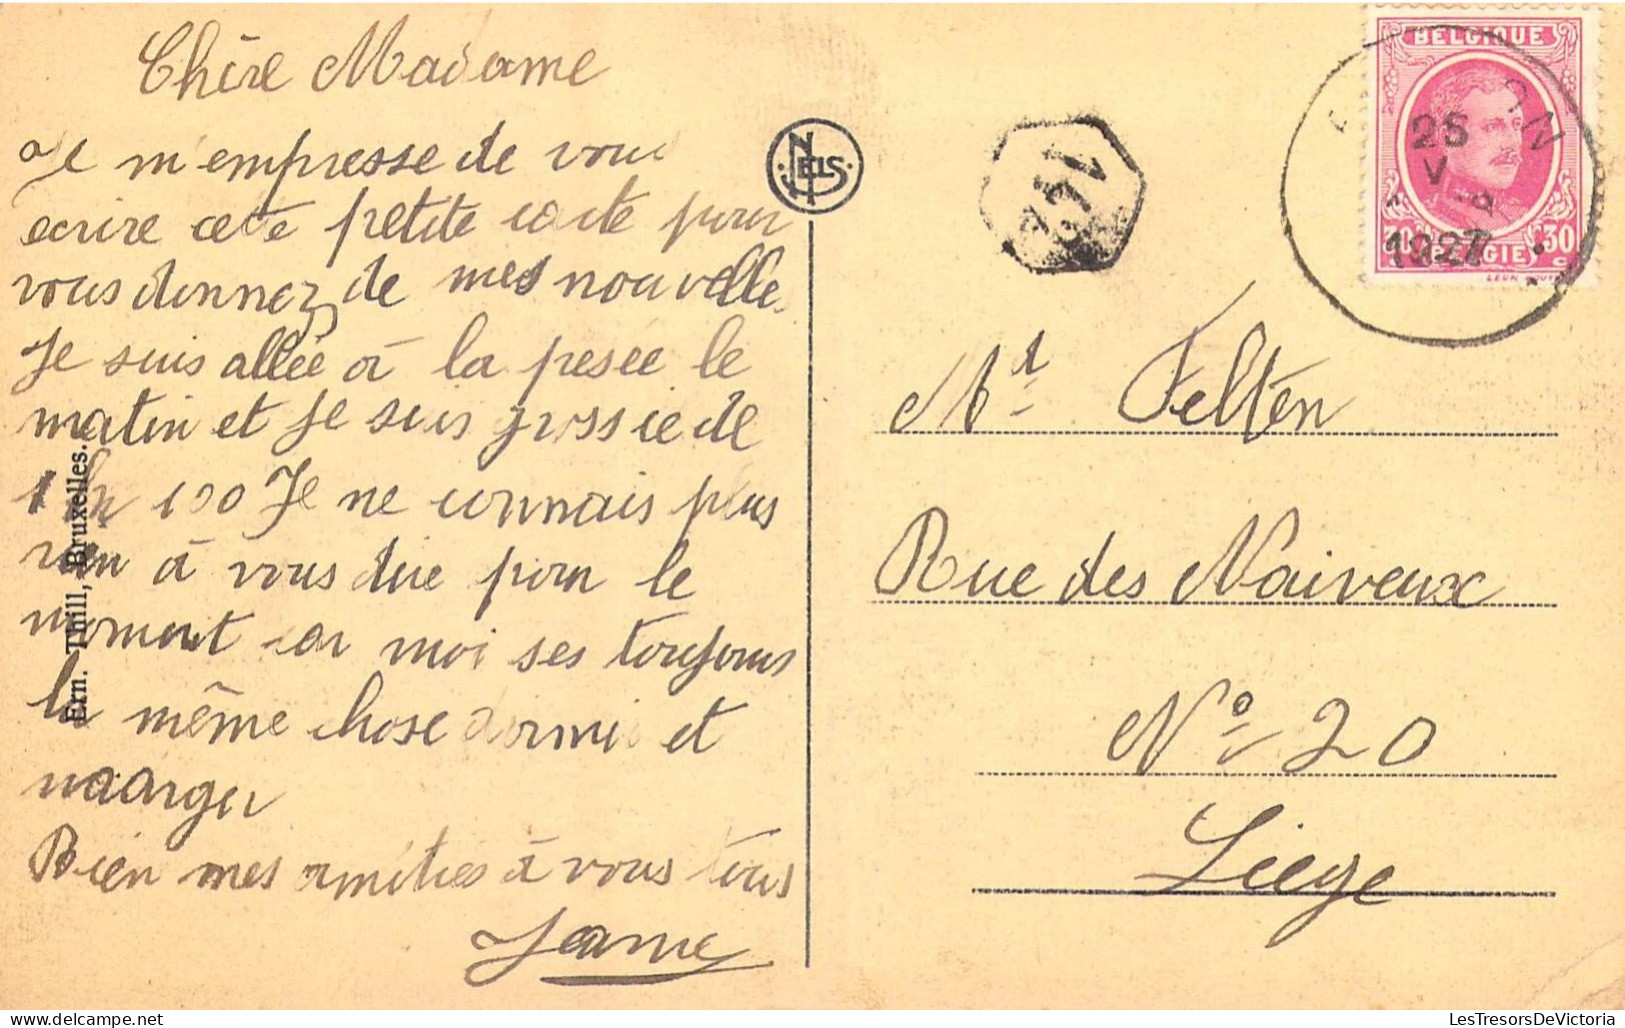 Chère Madame
Je m'empresse de vous
ecrire cete petite carte pour
vous donnez de mes nouvelle.
Je suis allée à la pesée le
matin et je suis grossie de
1 100 Je ne connais plus
rien à vous dire pour le
moment car moi ses toujours
la même chose dormir et
maanger
Bien mes amitiés à vous tous
Jeanne
Ern. Thill, Bruxelles.
NELS
142
BELGIQUE
25
V
1927
30 BELGIE 30
Mr Felten
Rue des Naiveux
No 20
Liége
LesTresorsDeVictoria